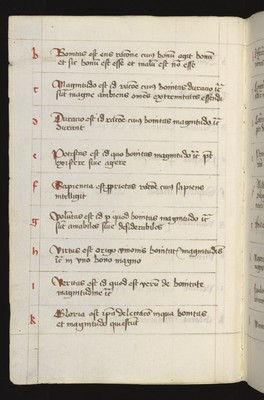 b Bonitas est ens racione cuius bonus agit bonum
et sic bonum est esse et malum est non esse
c Magnitudo est id racione cuius bonitas duracio etc
sunt magne ambiens omnes extremitates essendi
d Duracio est id racione cuius bonitas magnitudo etc
durant
e Potestas est id quo bonitas magnitudo etc
existere sive agere
f Sapiencia est proprietas racione cuius sapiens
intelligit
g Voluntas est id per quod bonitas magnitudo etc
sunt amabiles sive desiderabiles
h Virtus est origo unionis bonitatis magnitudinis
etc in uno bono magno
i Veritas est id quod est verum de bonitate
magnitudine etc
k Gloria est ipsa delectatio in qua bonitas
et magnitudo quiescunt